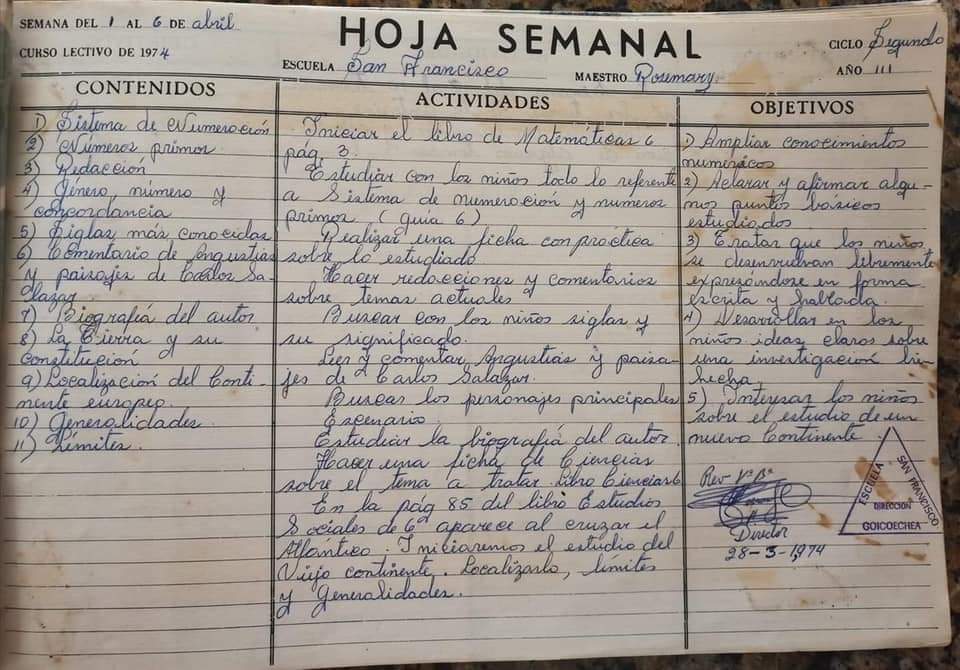 SEMANA DEL 1 AL 6 DE abril
HOJA SEMANAL
CICLO Segundo
CURSO LECTIVO DE 1974
ESCUELA San Francisco
MAESTRO Rosemary
AÑO III
CONTENIDOS
1) Sistema de Numeración
2) Números primos
3) Redacción
4) Género, número y
concordancia
5) Siglas más conocidas
6) Comentario de Angustias
y paisajes de Carlos Sa-
lazar
7) Biografía del autor
8) La Tierra y su
Constitución
9) Localización del Conti-
nente europeo.
10) Generalidades
11) Límites.
ACTIVIDADES
Iniciar el libro de Matemáticas 6
pág. 3.
Estudiar con los niños todo lo referente
a Sistema de numeración y números
primos (guía 6)
Realizar una ficha con práctica
sobre lo estudiado
Hacer redacciones y comentarios
sobre temas actuales
Buscar con los niños siglas y
su significado.
Leer y comentar Angustias y paisa-
jes de Carlos Salazar.
Buscar los personajes principales
Escenario
Estudiar la biografía del autor.
Hacer una ficha de Ciencias
sobre el tema a tratar. Libro Ciencias 6
En la pág 85 del libro Estudios
Sociales de 6º aparece al cruzar el
Atlántico. Iniciaremos el estudio del
Viejo continente. Localizarlo, límites
y Generalidades.
OBJETIVOS
1) Ampliar conocimientos
numéricos
2) Aclarar y afirmar algu-
nos puntos básicos
estudiados
3) Tratar que los niños
se desenvuelvan libremente
expresándose en forma
escrita y hablada.
4) Desarrollar en los
niños ideas claros sobre
una investigación bien
hecha.
5) Interesar los niños
sobre el estudio de un
nuevo Continente.
Rev- Vº Bº
Director
28-3-1974
ESCUELA
SAN FRANCISCO
DIRECCION
GOICOECHEA